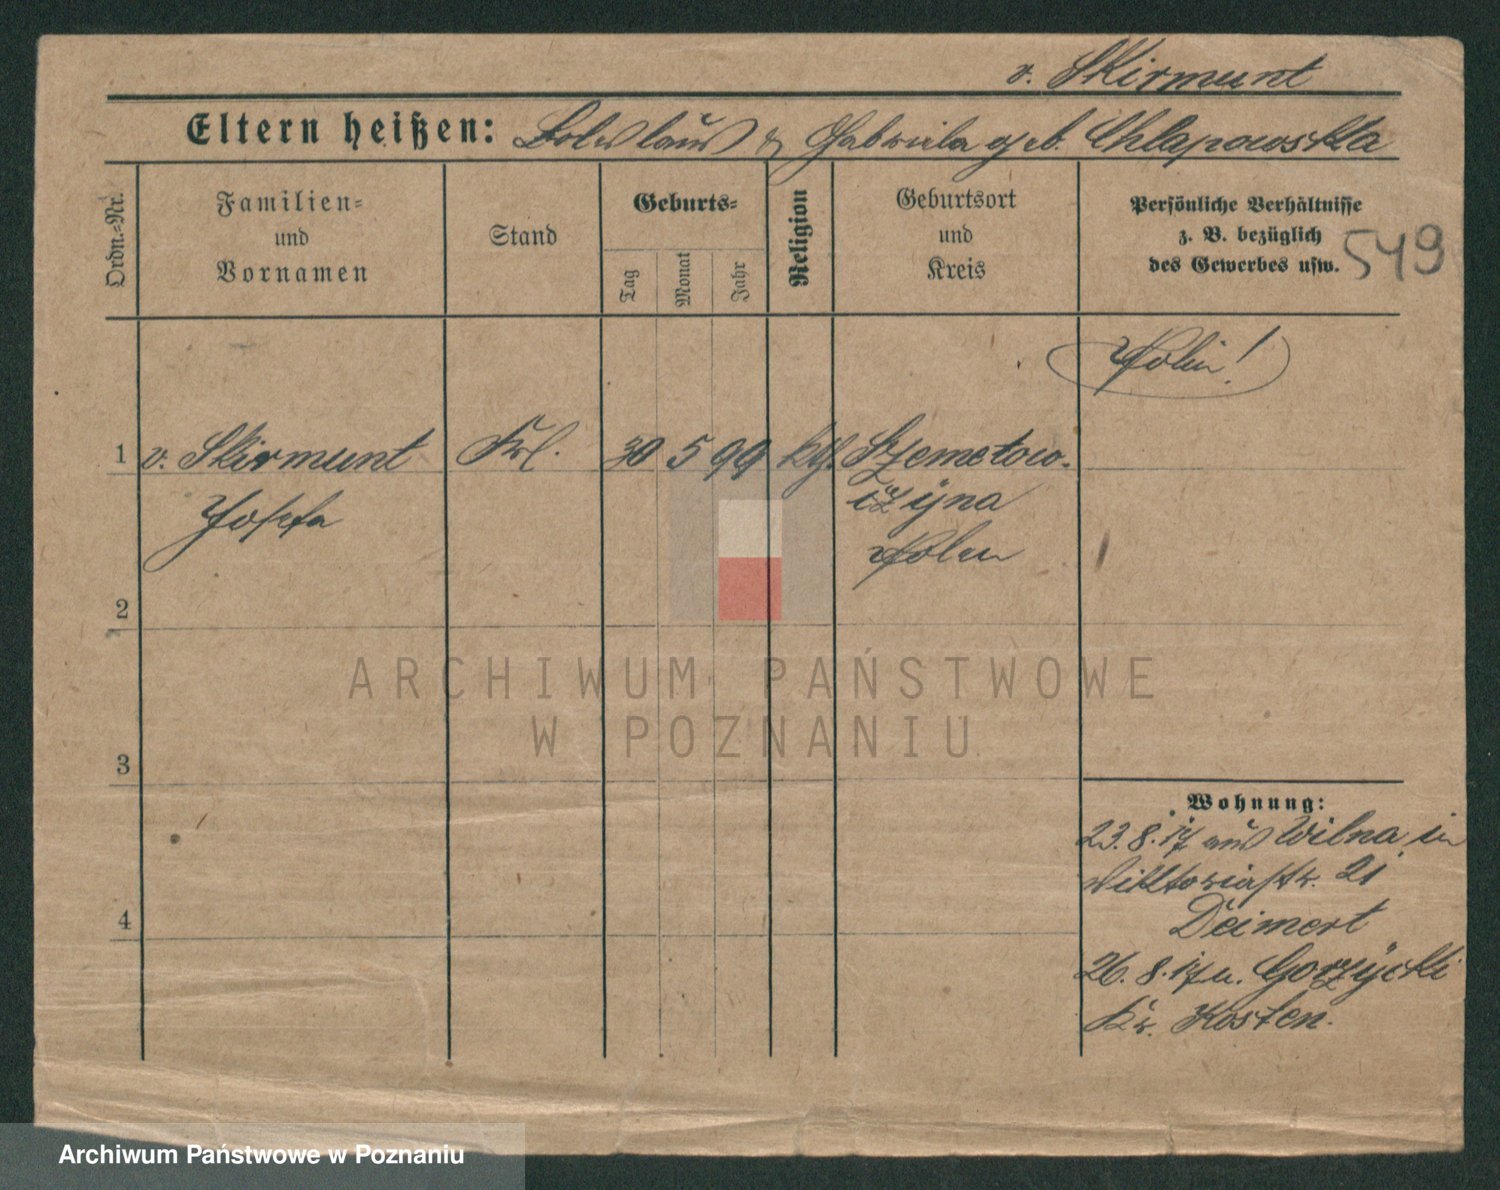 v. Skirmunt
Eltern heißen: Boleslaus & Gabriela geb. Chlapowska
Ordn.-Nr.
Familien-
und
Vornamen
Stand
Geburts-
Tag
Monat
Jahr
Religion
Geburtsort
und
Kreis
Persönliche Verhältnisse
z. B. bezüglich
des Gewerbes usw.
549
Polin!
1 v. Skirmunt Frl. 30 5 99 kth. Szemetow-
Josefa
izyna
Polen
2
3
4
ARCHIWUM PAŃSTWOWE
W POZNANIU
Wohnung:
23.8.17 aus Wilna in
Viktoriastr. 21
Deimert
26.8.17 n. Gorzycki
Kr. Kosten.
Archiwum Państwowe w Poznaniu